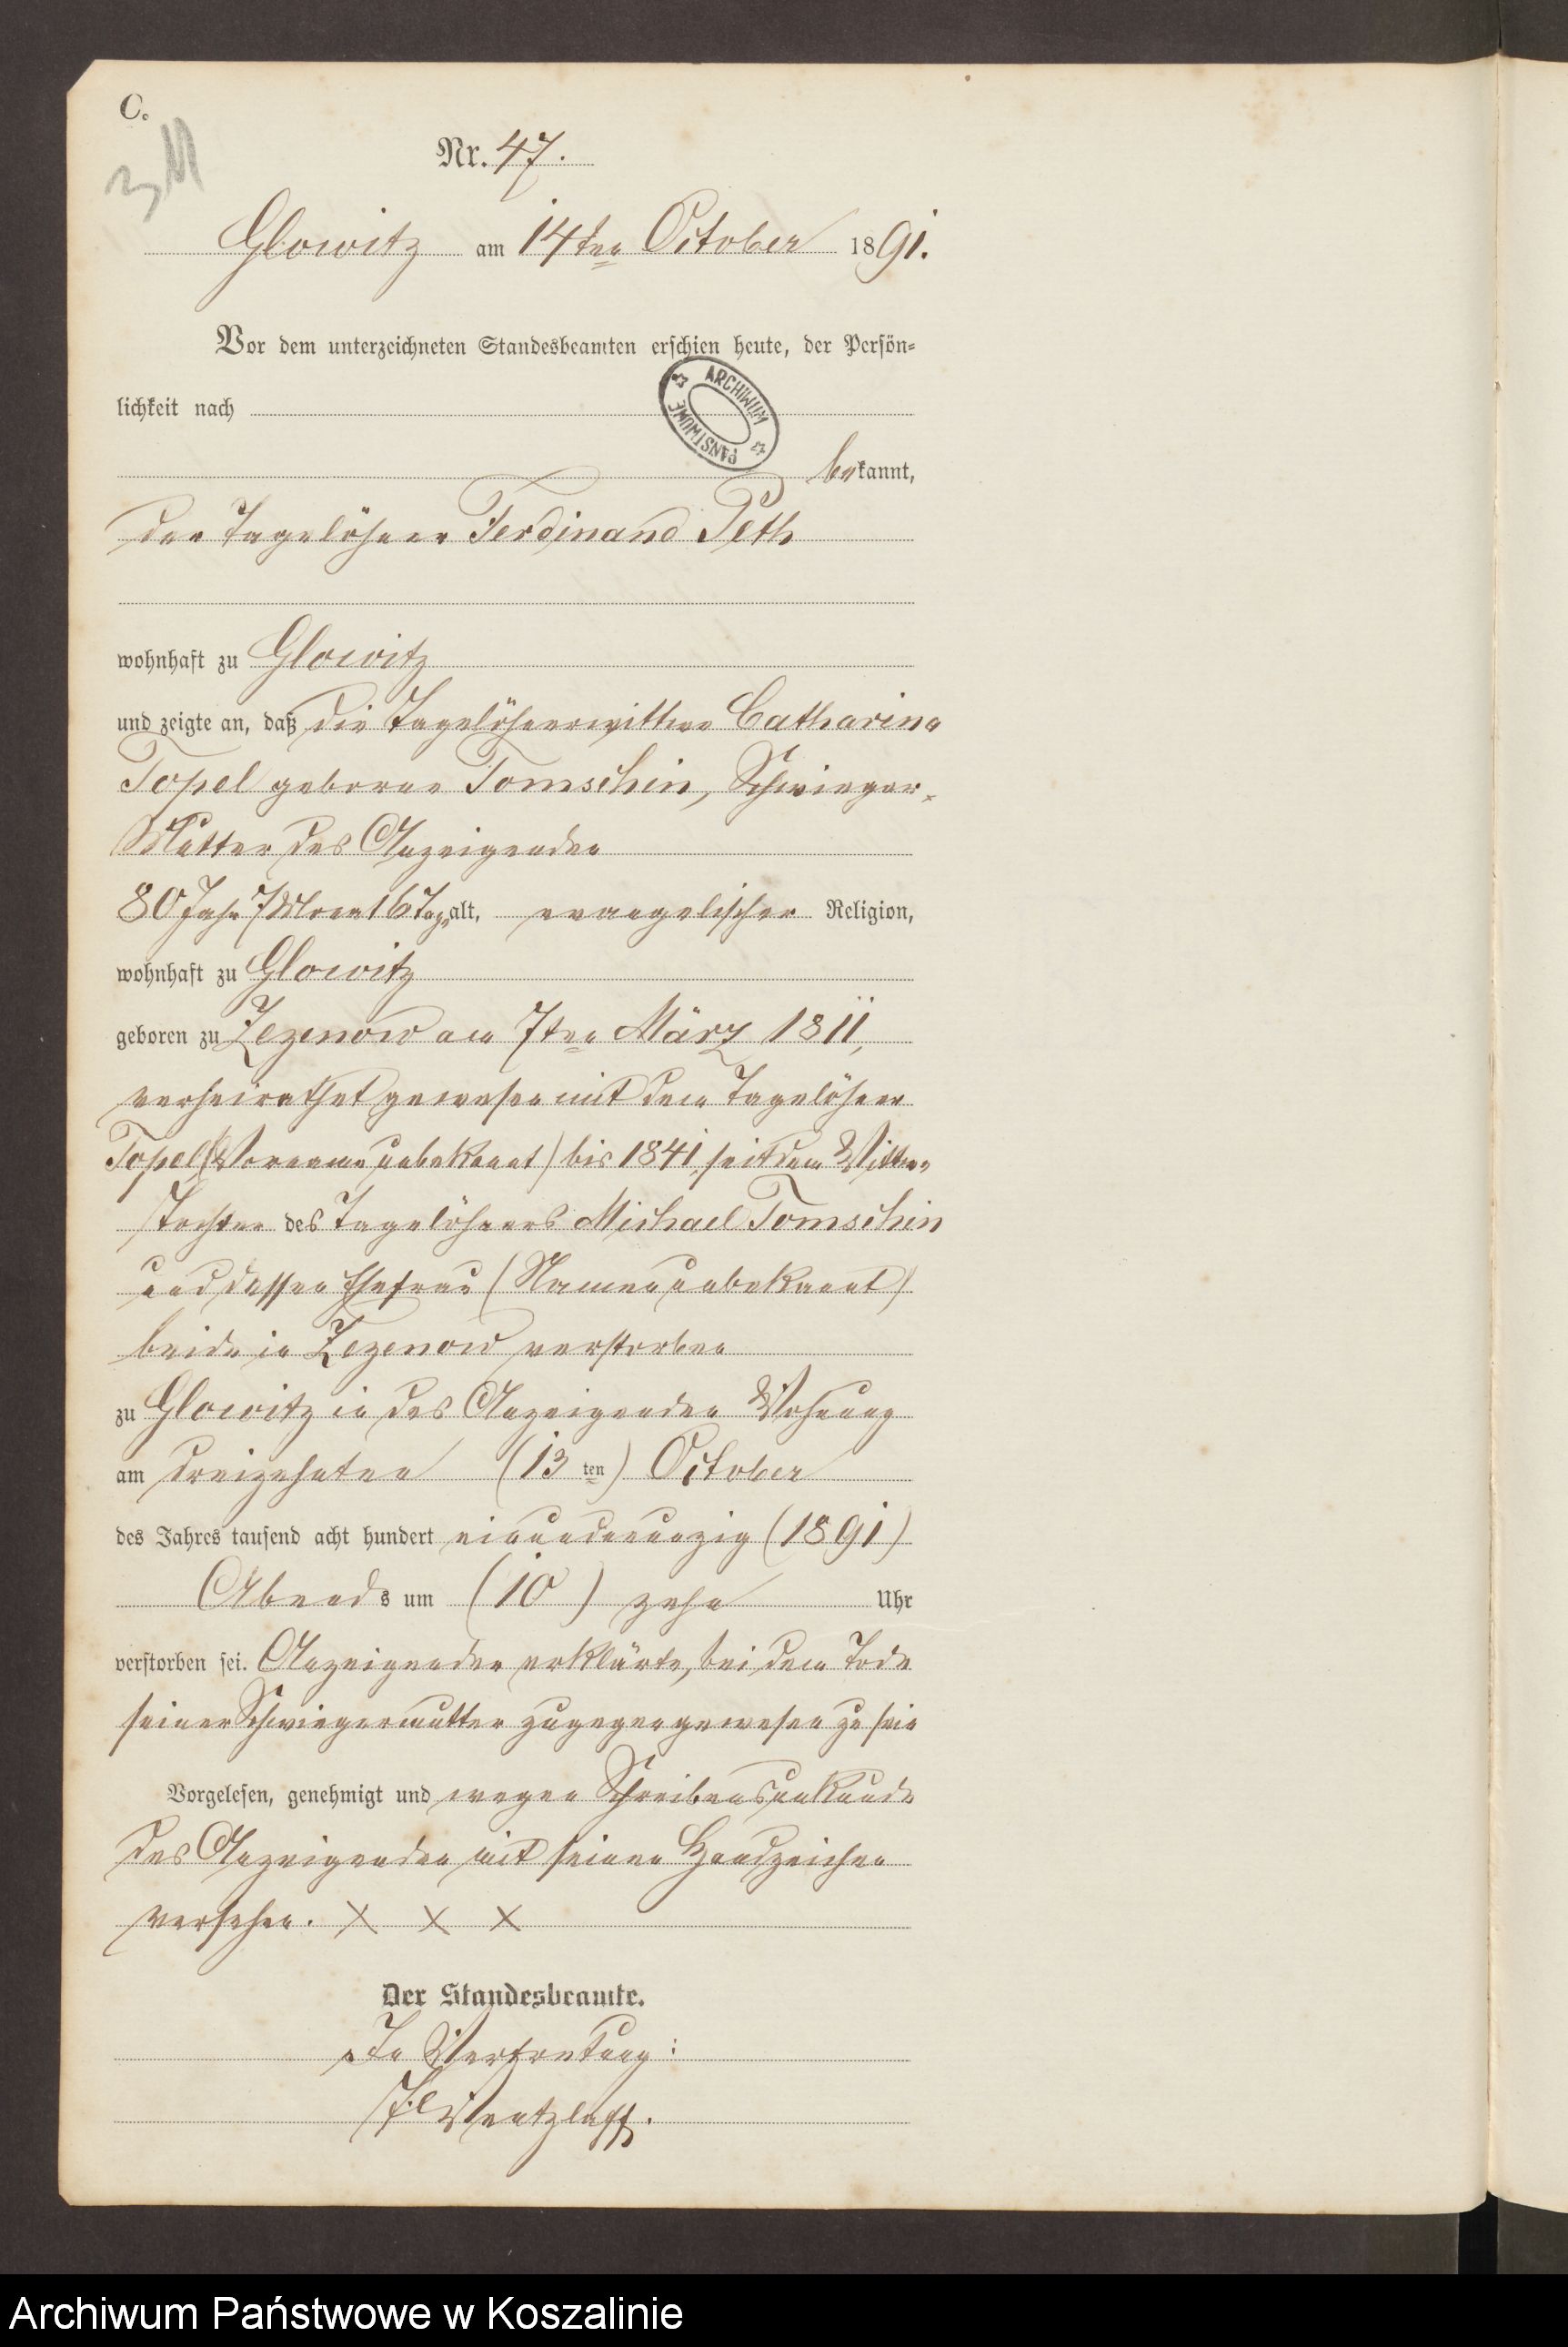 C.
Nr. 47.
Glowitz am 14ten October 1891.
Vor dem unterzeichneten Standesbeamten erschien heute, der Persön-
lichkeit nach
ARCHIWUM PAŃSTWOWE
bekannt,
der Tagelöhner Ferdinand Peth
wohnhaft zu Glowitz
und zeigte an, daß die Tagelöhnerwittwe Catharina
Topel geborne Tomschin, Schwieger-
Mutter des Anzeigenden
80 Jahr 7 Mon 16 Tage alt, evangelischer Religion,
wohnhaft zu Glowitz
geboren zu Zezenow am 7ten März 1811,
verheirathet gewesen mit dem Tagelöhner
Topel (Vorname unbekannt) bis 1841, seitdem Wittwe
Tochter des Tagelöhners Michael Tomschin
und dessen Ehefrau (Namen unbekannt)
beide in Zezenow verstorben
zu Glowitz in des Anzeigenden Wohnung
am dreizehnten (13ten) October
des Jahres tausend acht hundert einundneunzig (1891)
Abends um (10) zehn Uhr
verstorben sei. Anzeigender erklärte, bei dem Tode
seiner Schwiegermutter zugegen gewesen zu sein
Vorgelesen, genehmigt und wegen Schreibensunkunde
des Anzeigenden mit seinen Handzeichen
versehen. X X X
Der Standesbeamte.
In Vertretung:
Wentzlaff.
Archiwum Państwowe w Koszalinie